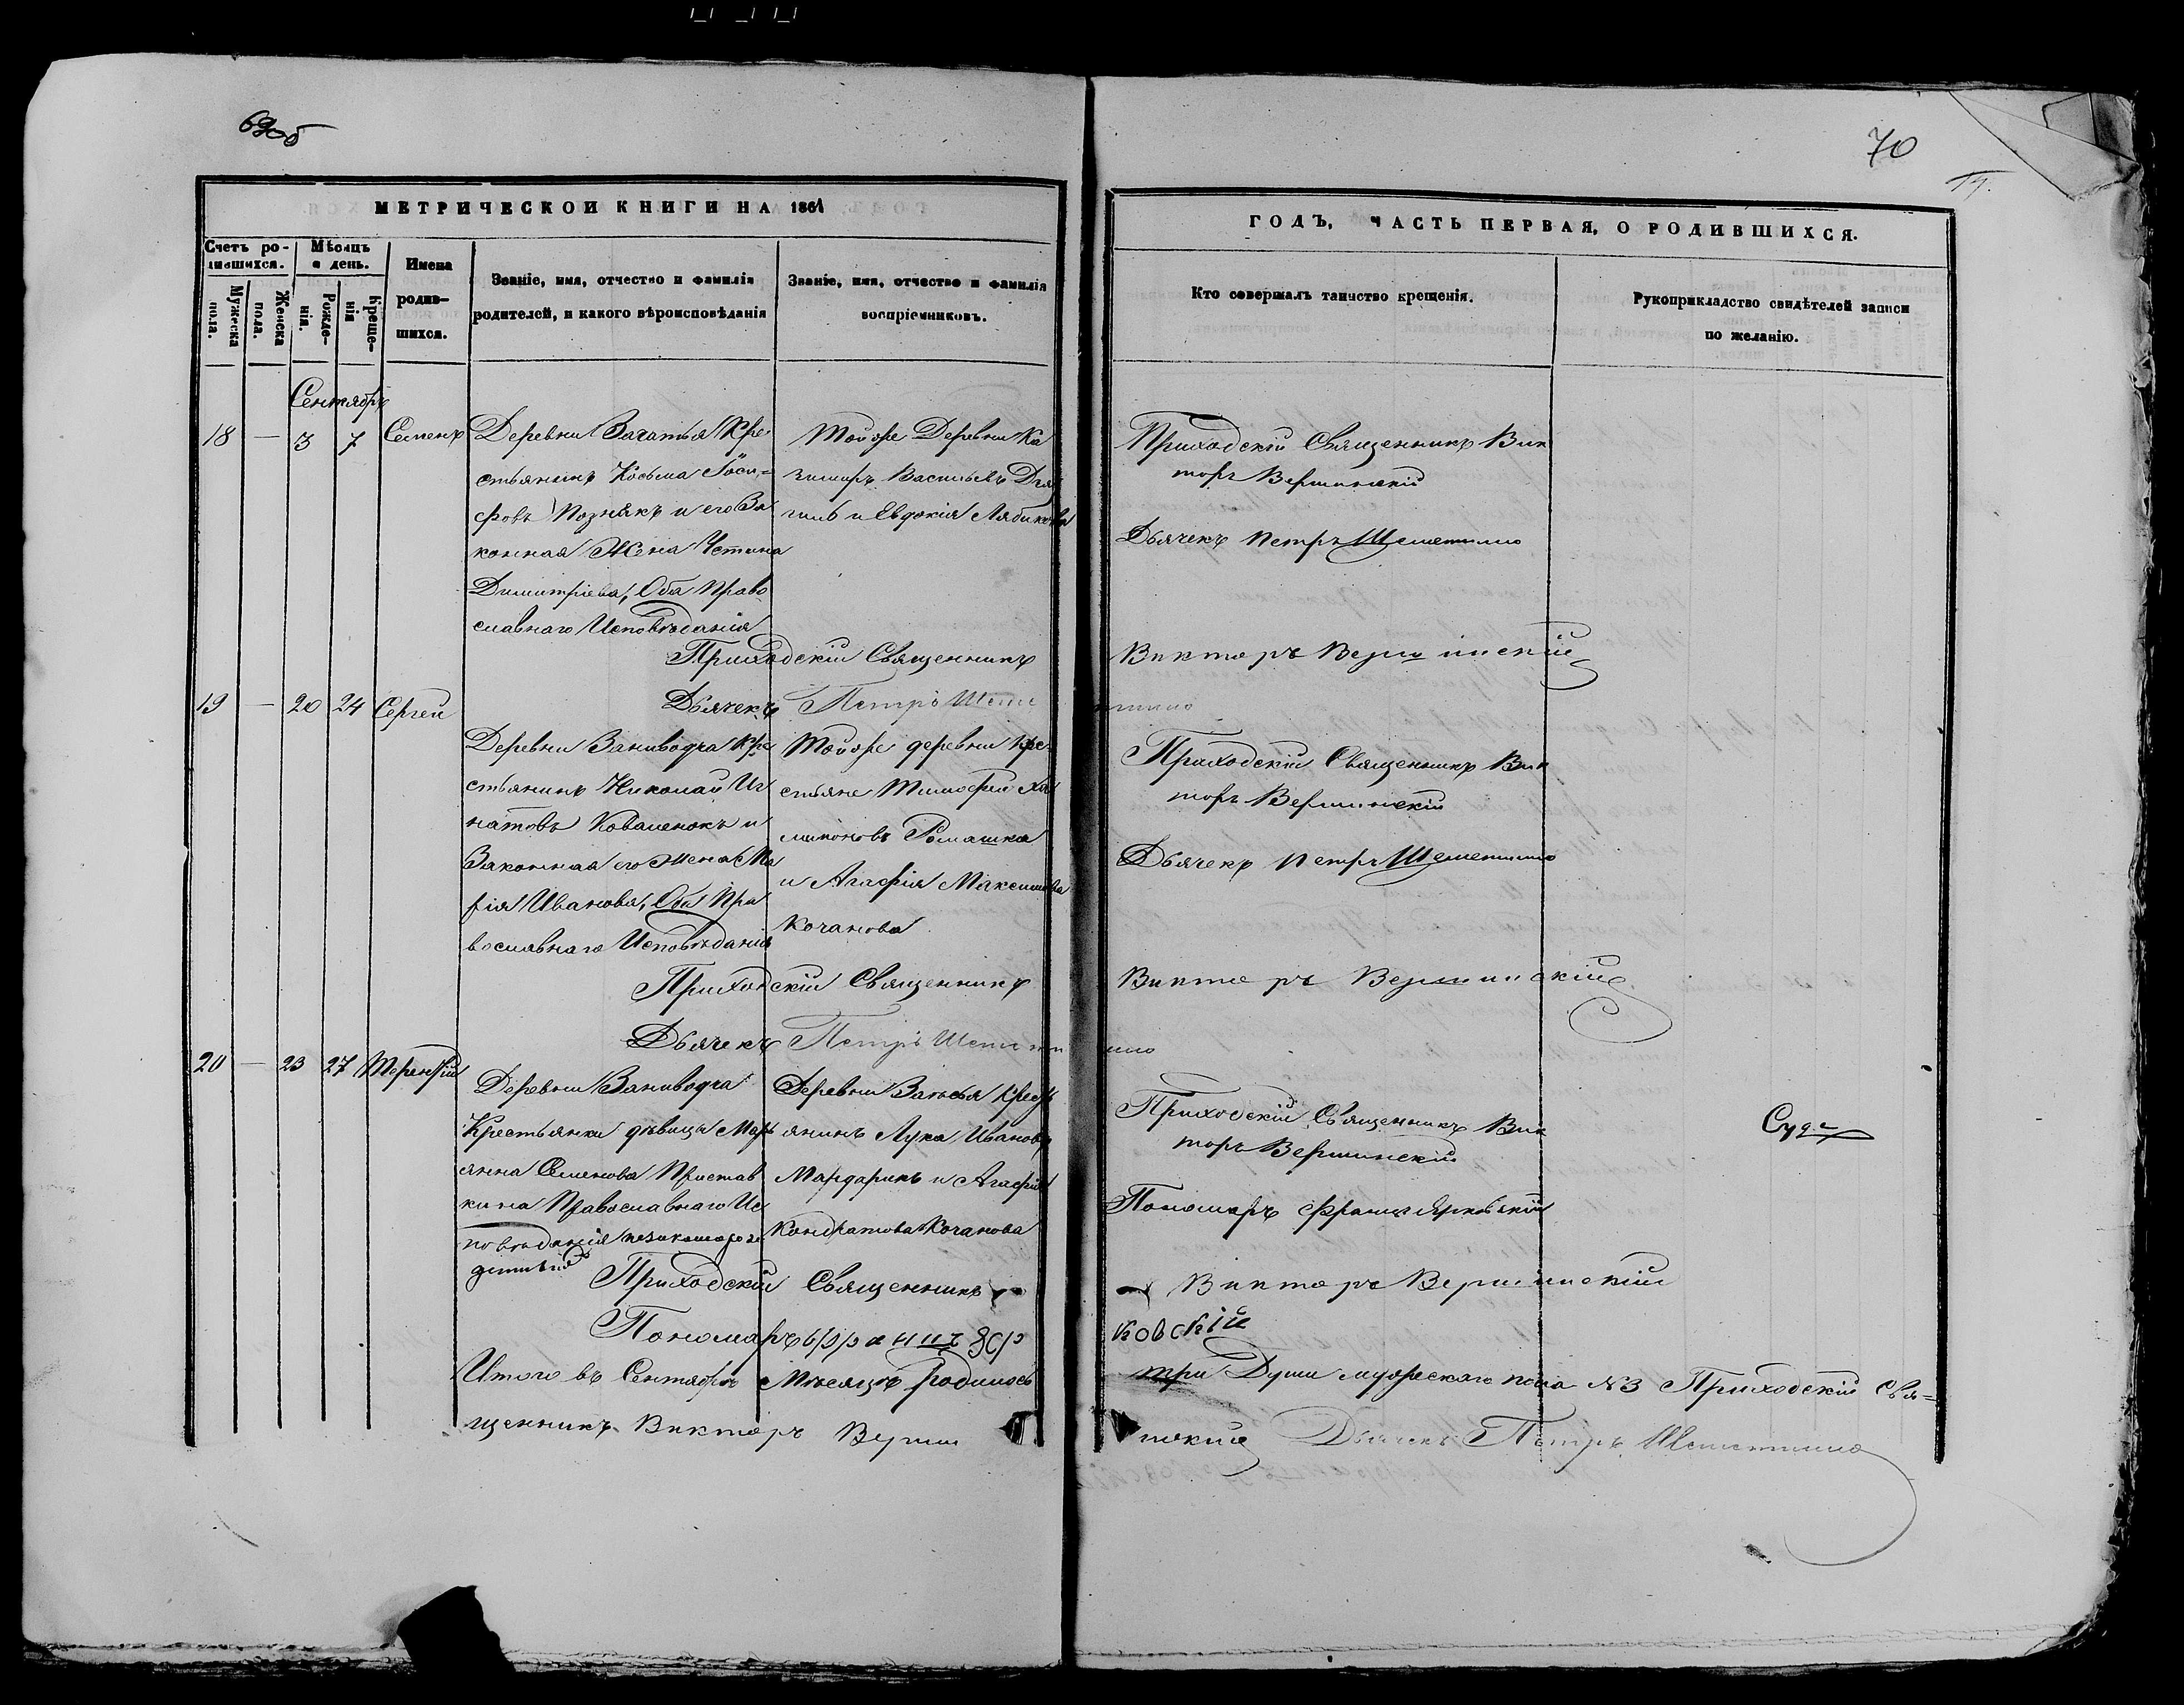 69об
70
МЕТРИЧЕСКОЙ КНИГИ НА 1861
ГОДЪ, ЧАСТЬ ПЕРВАЯ, О РОДИВШИХСЯ.
Счетъ родившихся.
Мужеска пола.
Женска пола.
Мѣсяцъ и день.
Рожденія.
Крещенія
Имена родившихся.
Званіе, имя, отчество и фамилія
родителей, и какого вѣроисповѣданія
Званіе, имя, отчество и фамилія
воспріемниковъ.
Кто совершалъ таинство крещенія.
Рукоприкладство свидѣтелей записи
по желанію.
Сентябрь
18 — 3 7 Семенъ
Деревни Зачатья Кре
стьянинъ Косьма Іоси=
фовъ Познякъ и его За
конная Жена Устина
Димитріева, Оба Право
славнаго Исповѣданія
Тойже Деревни Ка
зимиръ Васильевъ
и Евдокія
Приходскій Священникъ Вик
торъ Вершинскій
Дьячекъ Петръ Шеметилло
Приходскій Священникъ Викторъ Вершинскій
Дьячекъ Петръ Шеметилло
19 — 20 24 Сергей
Деревни Заниводча Кре
стьянинъ Николай Иг
натовъ Коваленокъ и
Законная его Жена Ма
рія Иванова, Оба Пра
вославнаго Исповѣданія
Тойже деревни Кре
стьяне Тимофей Ха
Ромашка
и Агафія Максимова
Кочанова
Приходскій Священникъ Вик
торъ Вершинскій
Дьячекъ Петръ Шеметилло
Приходскій Священникъ Викторъ Вершинскій
Дьячекъ Петръ Шеметилло
20 — 23 27 Терентій
Деревни Заниводча
Крестьянки дѣвицы Марь
янна Семенова Пристав
кина Православнаго Ис
повѣданія
Деревни Залѣсья Крест
янинъ Лука Ивановъ
Мандарикъ и Агафія
Кондратова Кочанова
Приходскій Священникъ Вик
торъ Вершинскій
Пономарь Францъ
Приходскій Священникъ Викторъ Вершинскій
Пономарь Францъ
Итого въ Сентябрѣ Мѣсяцѣ родилось три Души мужескаго пола №3 Приходскій Свя=
щенникъ Викторъ Вершинскій Дьячекъ Петръ Шеметилло